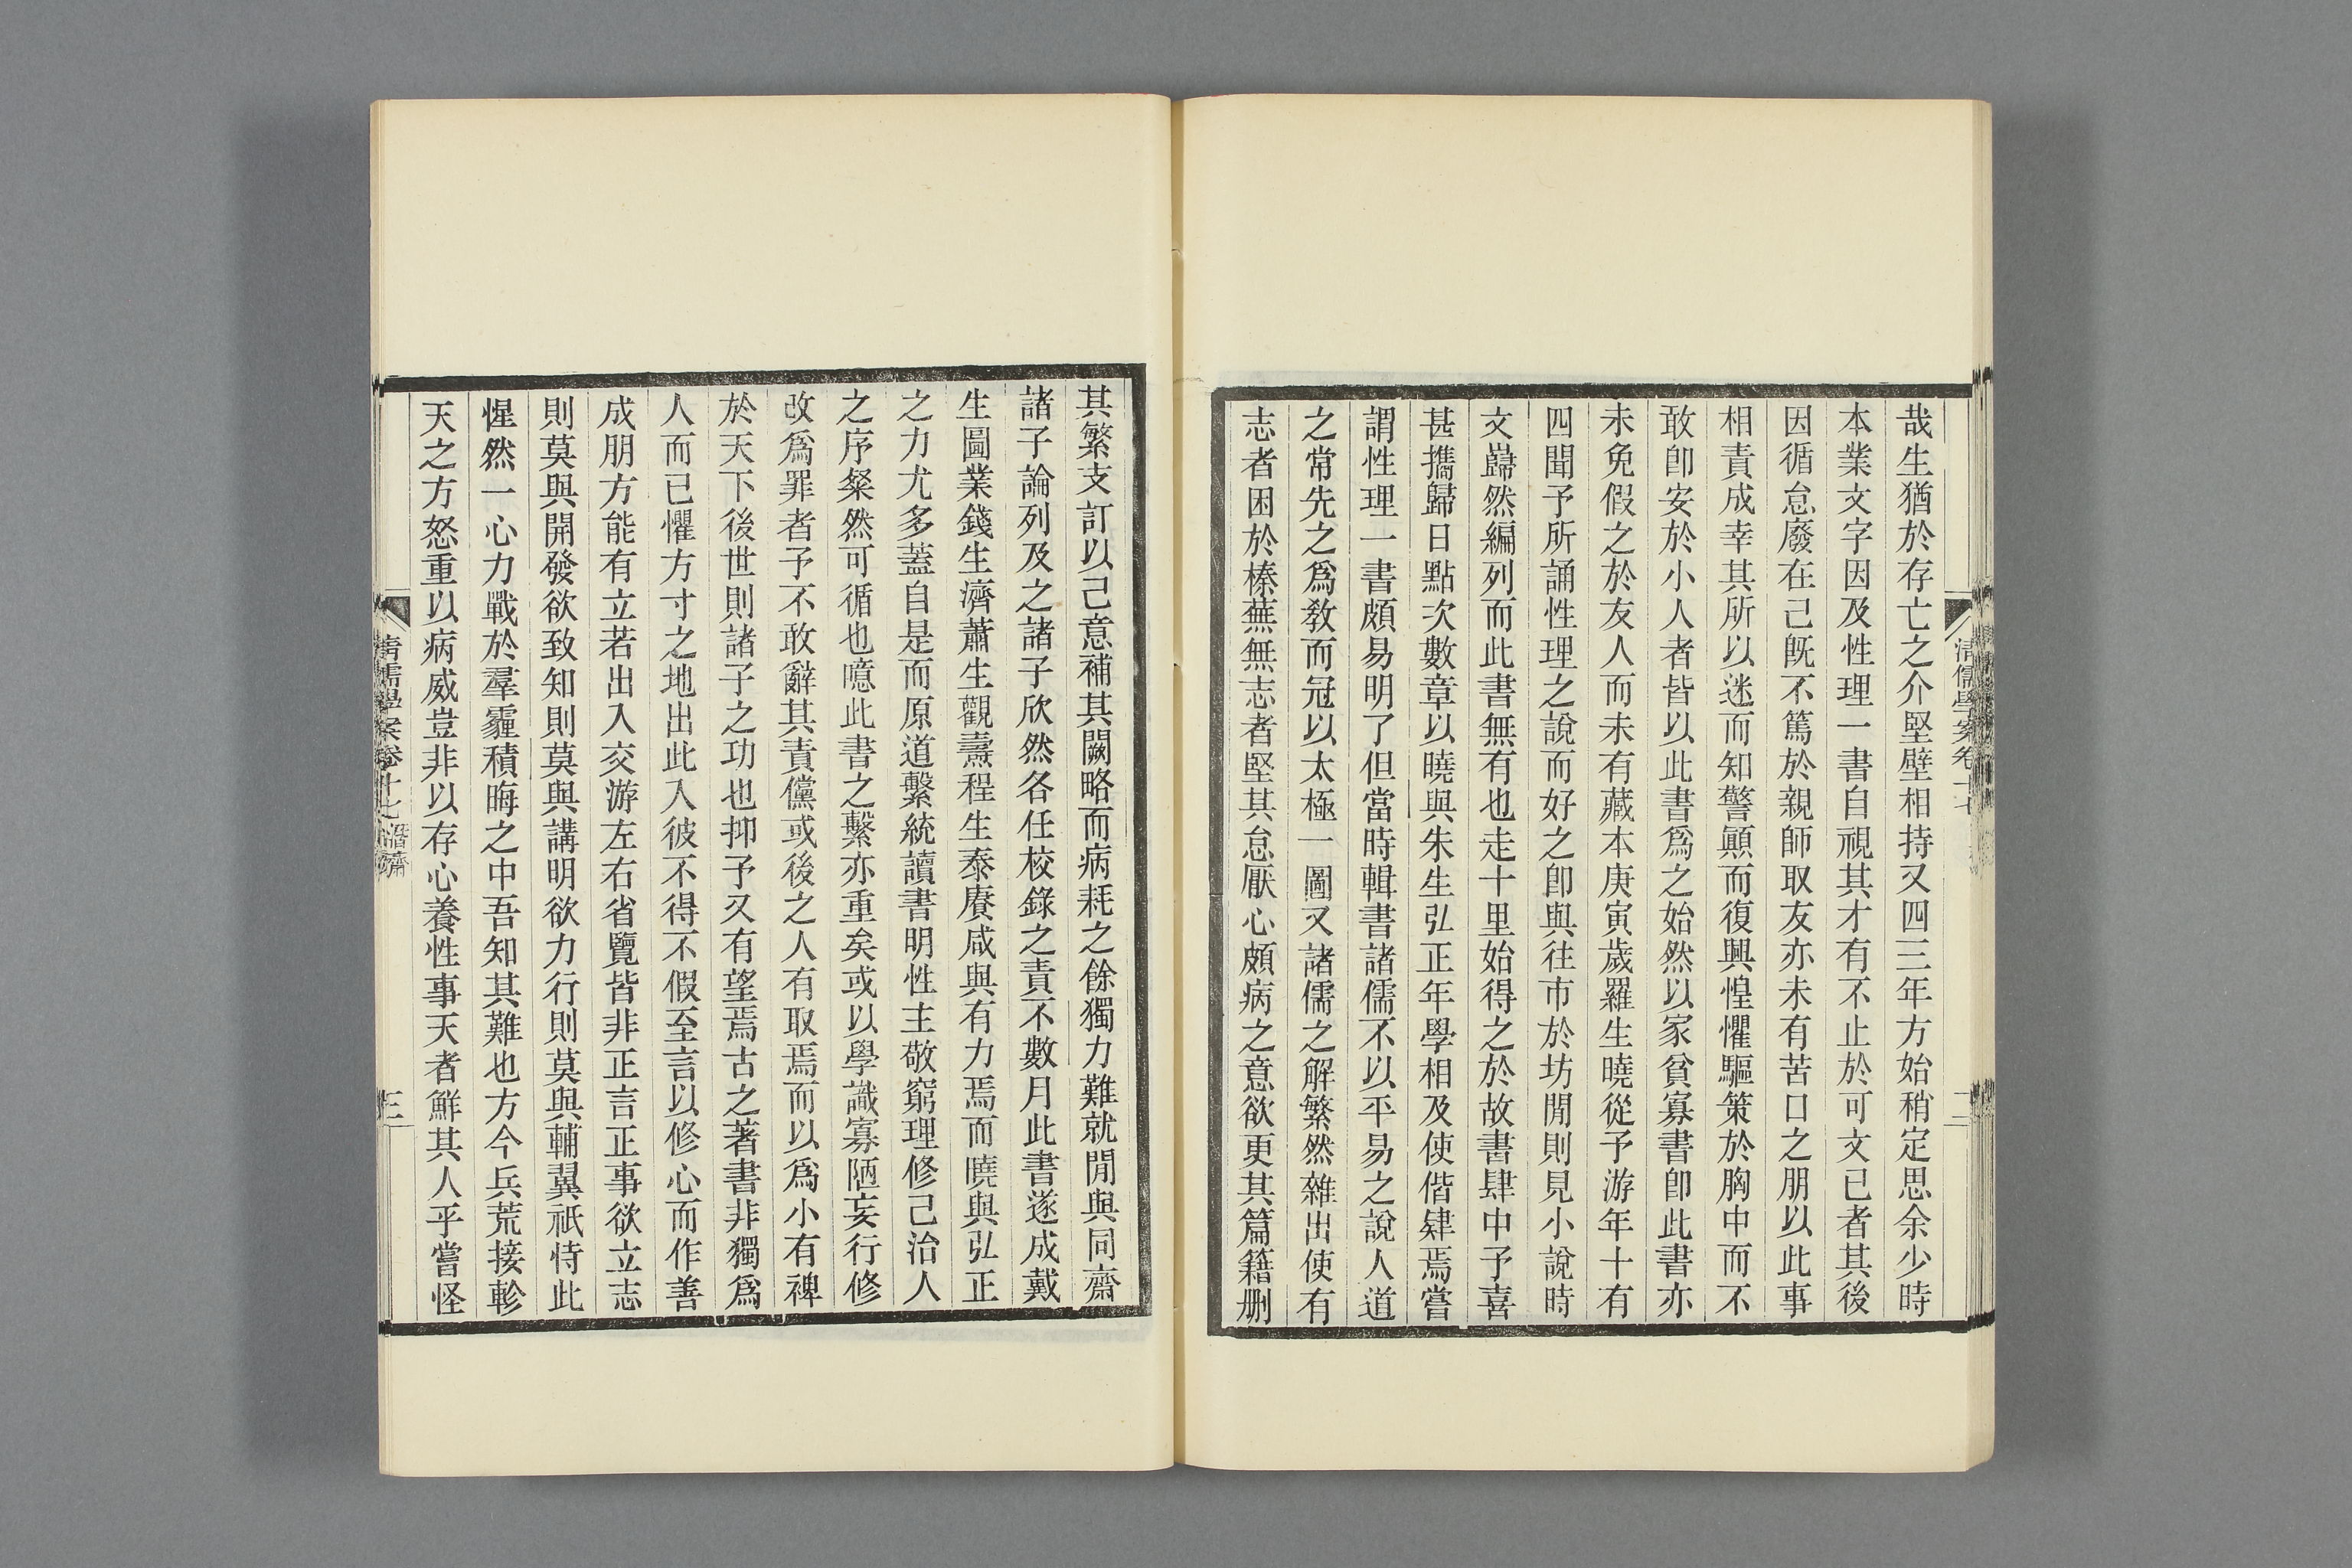 清儒學案卷十七
二
哉生猶於存亡之介堅壁相持又四三年方始稍定思余少時
本業文字因及性理一書自視其才有不止於可文已者其後
因循怠廢在己旣不篤於親師取友亦未有苦口之朋以此事
相責成幸其所以迷而知警顚而復興惶懼驅策於胸中而不
敢卽安於小人者皆以此書爲之始然以家貧寡書卽此書亦
未免假之於友人而未有藏本庚寅歲羅生曉從予游年十有
四聞予所誦性理之說而好之卽與往市於坊閒則見小說時
文巋然編列而此書無有也走十里始得之於故書肆中予喜
甚攜歸日點次數章以曉與朱生弘正年學相及使偕肄焉嘗
謂性理一書頗易明了但當時輯書諸儒不以平易之說人道
之常先之爲敎而冠以太極一圖又諸儒之解繁然雜出使有
志者困於榛蕪無志者堅其怠厭心頗病之意欲更其篇籍删
其繁支訂以己意補其闕略而病耗之餘獨力難就閒與同齋
諸子論列及之諸子欣然各任校錄之責不數月此書遂成戴
生圖業錢生濟蕭生觀燾程生泰賡咸與有力焉而曉與弘正
之力尤多蓋自是而原道繫統讀書明性主敬窮理修己治人
之序粲然可循也噫此書之繫亦重矣或以學識寡陋妄行修
改爲罪者予不敢辭其責儻或後之人有取焉而以爲小有裨
於天下後世則諸子之功也抑予又有望焉古之著書非獨爲
人而已懼方寸之地出此入彼不得不假至言以修心而作善
成朋方能有立若出入交游左右省覽皆非正言正事欲立志
則莫與開發欲致知則莫與講明欲力行則莫與輔翼祇恃此
惺然一心力戰於羣霾積晦之中吾知其難也方今兵荒接軫
天之方怒重以病威豈非以存心養性事天者鮮其人乎嘗怪
清儒學案卷十七 潛齋
三